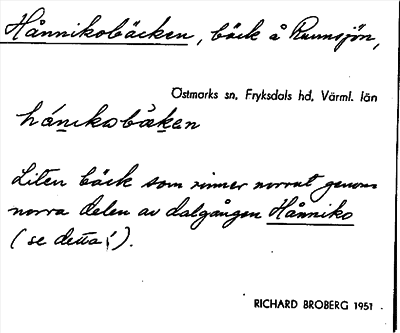 Hånnikobäcken, bäck å Runnsjön,
Östmarks sn, Fryksdals hd, Värml. län
hánikobäken
Liten bäck som rinner norrut genom
norra delen av dalgången Hånniko
(se detta!).
RICHARD BROBERG 1951